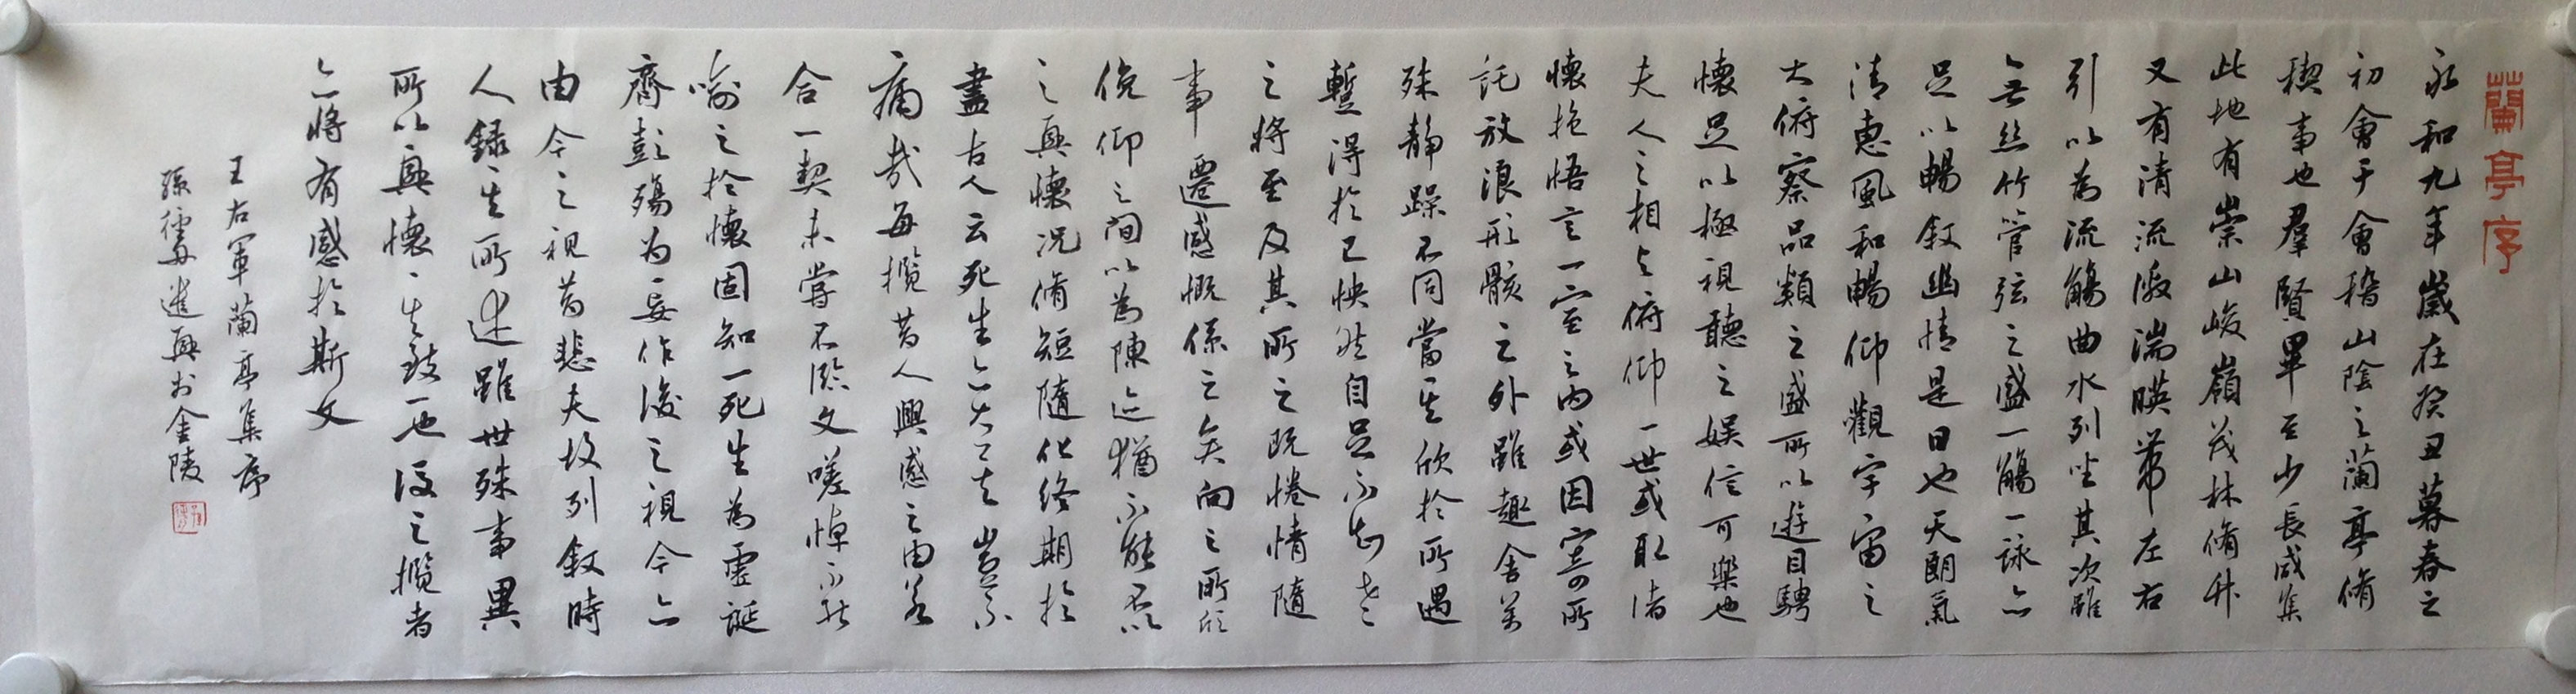 蘭亭序
永和九年歲在癸丑暮春之
初會于會稽山陰之蘭亭脩
稧事也羣賢畢至少長咸集
此地有崇山峻嶺茂林脩竹
又有清流激湍暎帶左右
引以為流觴曲水列坐其次雖
無絲竹管弦之盛一觴一詠亦
足以暢敘幽情是日也天朗氣
清惠風和暢仰觀宇宙之
大俯察品類之盛所以遊目騁
懷足以極視聽之娛信可樂也
夫人之相與俯仰一世或取諸
懷抱悟言一室之內或因寄所
託放浪形骸之外雖趣舍萬
殊靜躁不同當其欣於所遇
蹔得於己快然自足不知老
之將至及其所之既惓情隨
事遷感慨係之矣向之所欣
俛仰之間以為陳迹猶不能不以
之興懷況脩短隨化終期於
盡古人云死生亦大矣豈不
痛哉每攬昔人興感之由若
合一契未嘗不臨文嗟悼不能
喻之於懷固知一死生為虛誕
齊彭殤為妄作後之視今亦
由今之視昔悲夫故列敘時
人錄其所述雖世殊事異
所以興懷其致一也後之攬者
亦將有感於斯文
王右軍蘭亭集序
孫 書金陵